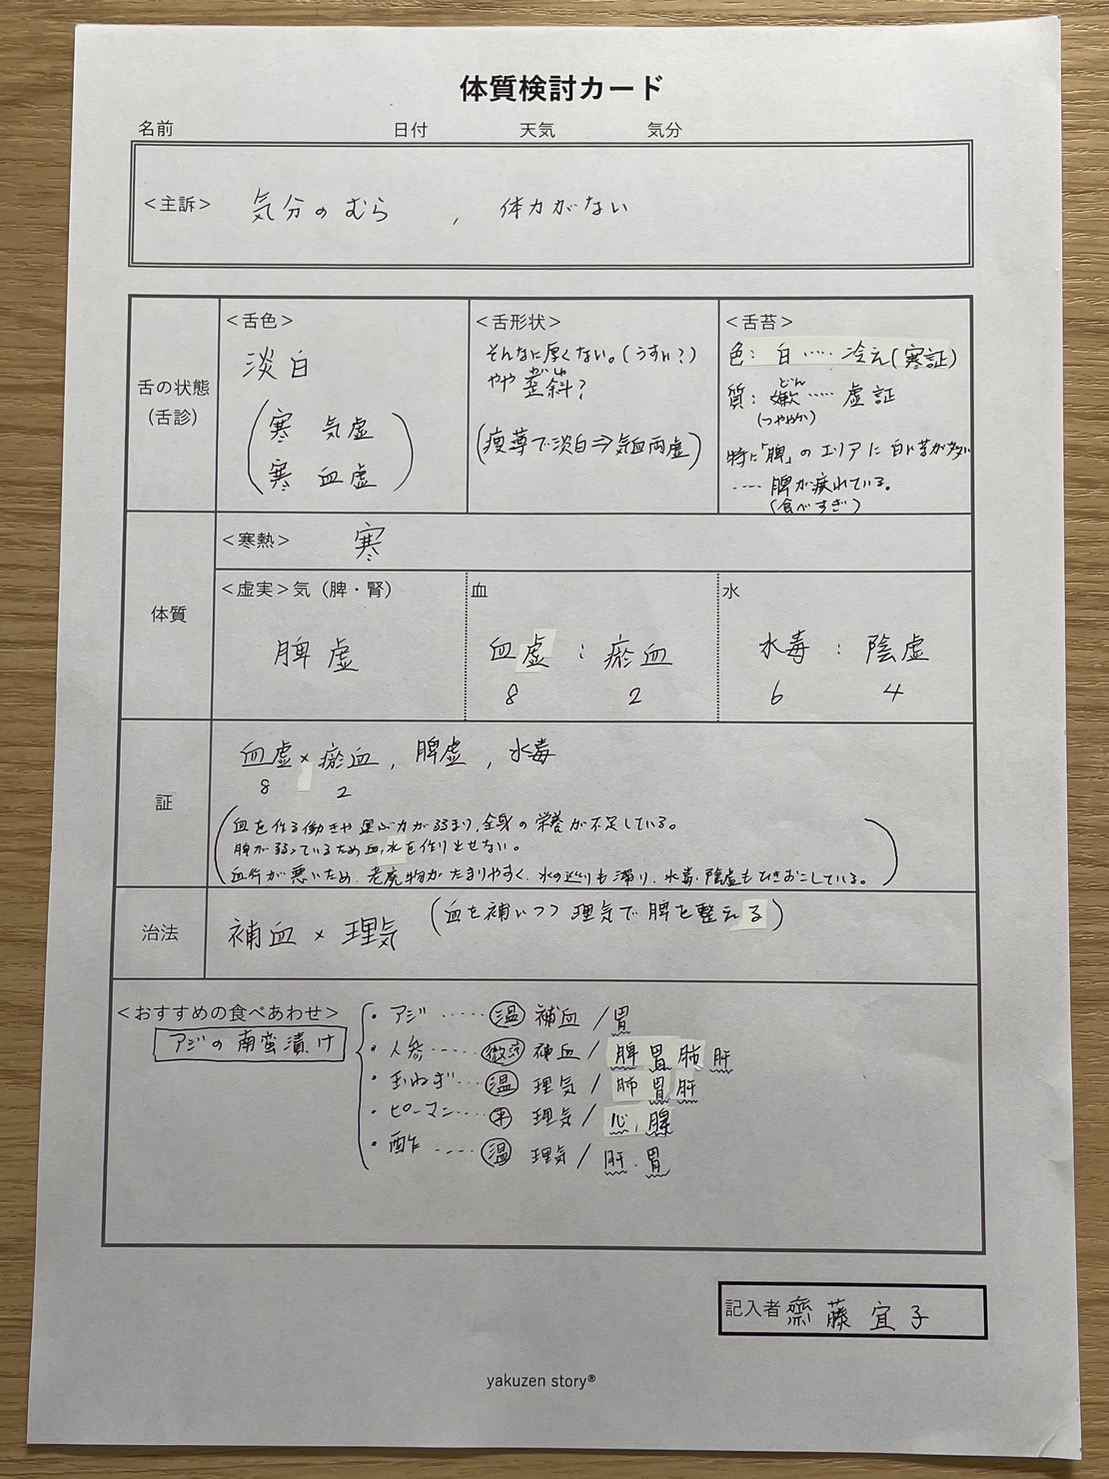 体質検討カード
名前 日付 天気 気分
<主訴> 気分のむら , 体力がない
舌の状態
(舌診)
<舌色>
淡白
(寒 気虚
寒 血虚)
<舌形状>
そんなに厚くない。(うすい?)
やや 歪斜?
わいしゃ
(痩薄で淡白⇒気血両虚)
<舌苔>
色: 白 ····· 冷え(寒証)
どん
質: 嫩 ····· 虚証
(つややか)
特に「脾」のエリアに白い苔が多い
···· 脾が疲れている。
(食べすぎ)
体質
<寒熱> 寒
<虚実>気(脾・腎)
脾虚
血
血虚 : 瘀血
8 2
水
水毒 : 陰虚
6 4
証
血虚×瘀血, 脾虚, 水毒
8 2
(血を作る働きや運ぶ力が弱まり、全身の栄養が不足している。
脾が弱っているため血、水を作り出せない。
血行が悪いため、老廃物がたまりやすく、水の巡りも滞り、水毒・陰虚もひきおこしている。)
治法
補血 × 理気 (血を補いつつ理気で脾を整える)
<おすすめの食べあわせ>
アジの南蛮漬け
・アジ ····· 温 補血 / 胃
・人参 ····· 微涼 補血 / 脾 胃 肺 肝
・玉ねぎ ··· 温 理気 / 肺 胃 肝
・ピーマン ···· 平 理気 / 心, 脾
・酢 ···· 温 理気 / 肝. 胃
記入者 齋藤宜子
yakuzen story®